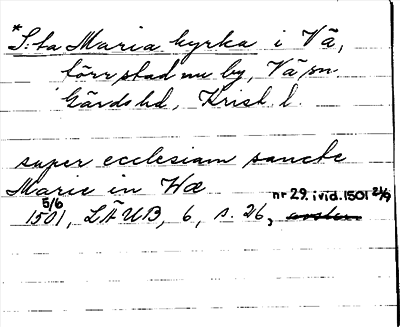 *S:ta Maria kyrka i Vä,
förr stad nu by, Vä sn
Gärds hd, Krist. l.
super ecclesiam sancte
Marie in Wæ
5/6 nr 29. i vid. 1501 21/9
1501, LÄUB, 6, s. 26,